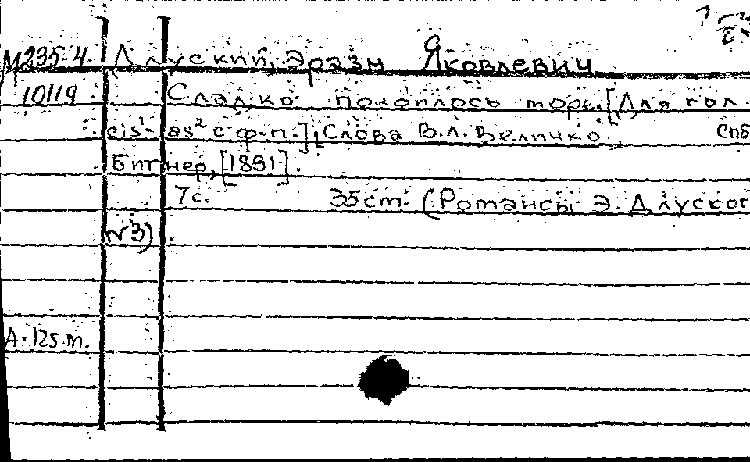 М235-4. Длуский, Эразм Яковлевич
10119 Сладко. [Для гол.
cis¹-as² с ф-п.] Слова В.Л. Величко. Спб
Битнер, [1891].
7с. 35cm. (Романсы Э. Длуског
№3).
А.125.m.